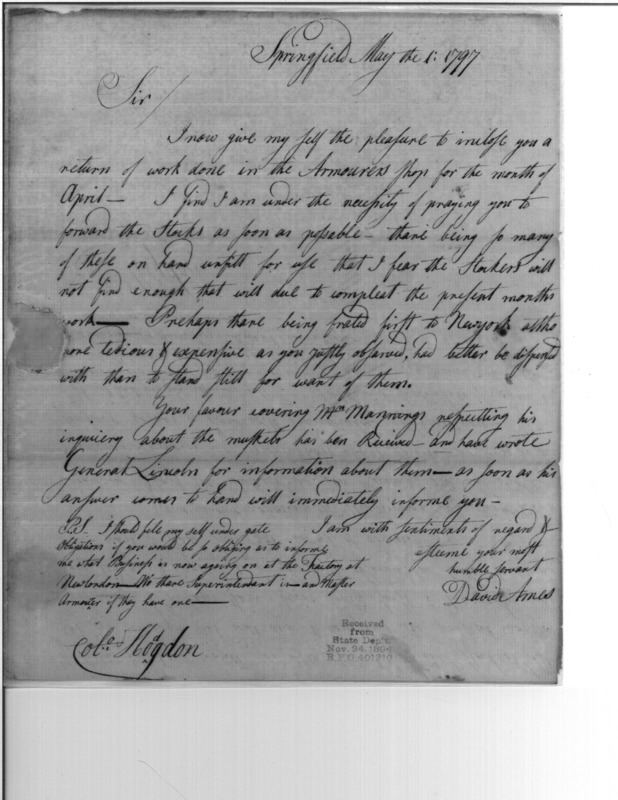 Springfield May the 1: 1797
Sir /
I now give my self the pleasure to inclose you a
return of work done in the Armourers shop for the month of
April — I find I am under the necessity of praying you to
forward the Stocks as soon as possable — thare being so many
of these on hand unfitt for use that I fear the Stockers will
not find enough that will due to compleat the present months
work — Prehaps thare being frated first to Newyork altho
more tedious & expensive as you justly observed, had better be dispersed
with than to stand still for want of them.
Your favour covering Mr Mannings respecting his
inquiery about the muskets has ben Received — and have wrote
General Lincoln for information about them — as soon as his
answer comes to hand will immediately informe you —
I am with sentiments of regard &
esteeme your most
humble servant
David Ames
P.S. I should fele my self under gate
Obligations if you would be so obliging as to informe
me what Business is now agoing on at the Factory at
Newlondon — Who thare Superintendant is — and Master
Armourer if they have one —
Colo. Hodgdon
Received
from
State Dep't.
Nov. 24, 1894
R.P.O. 401210